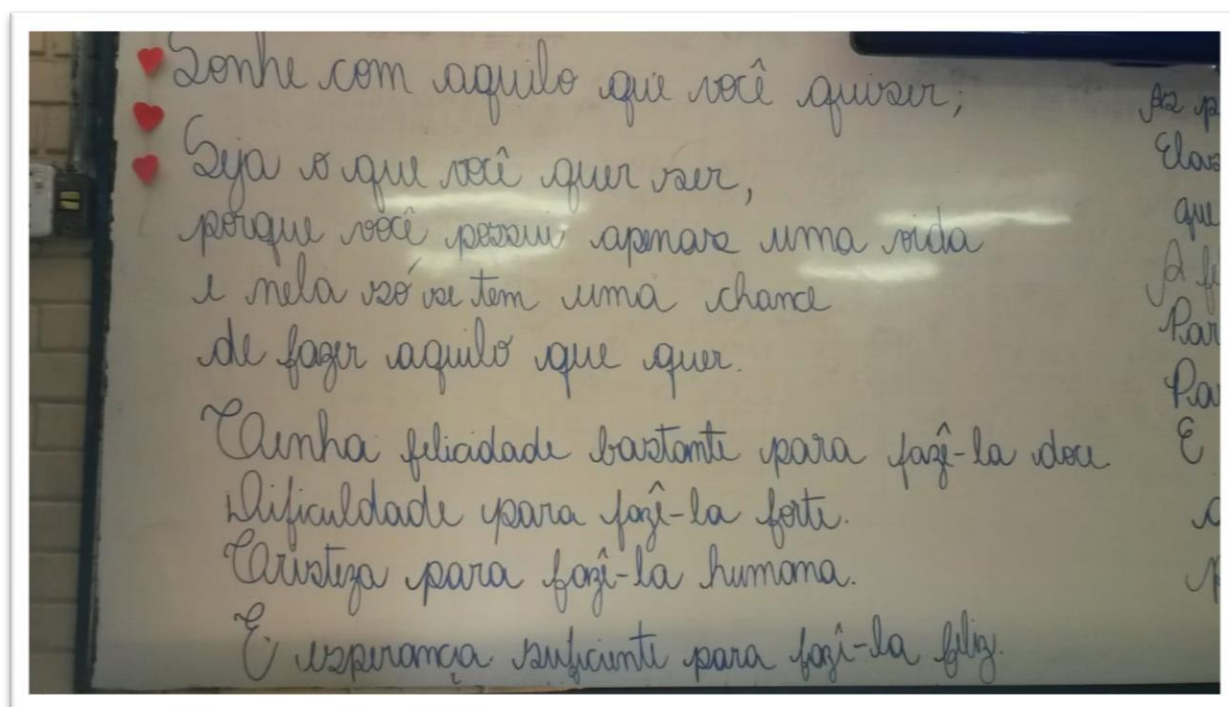 Sonhe com aquilo que você quiser;
Seja o que você quer ser,
porque você possui apenas uma vida
e nela só se tem uma chance
de fazer aquilo que quer.
Tenha felicidade bastante para fazê-la doce.
Dificuldade para fazê-la forte.
Tristeza para fazê-la humana.
E esperança suficiente para fazê-la feliz.
As p
Elas
que
A fe
Par
Pa
E